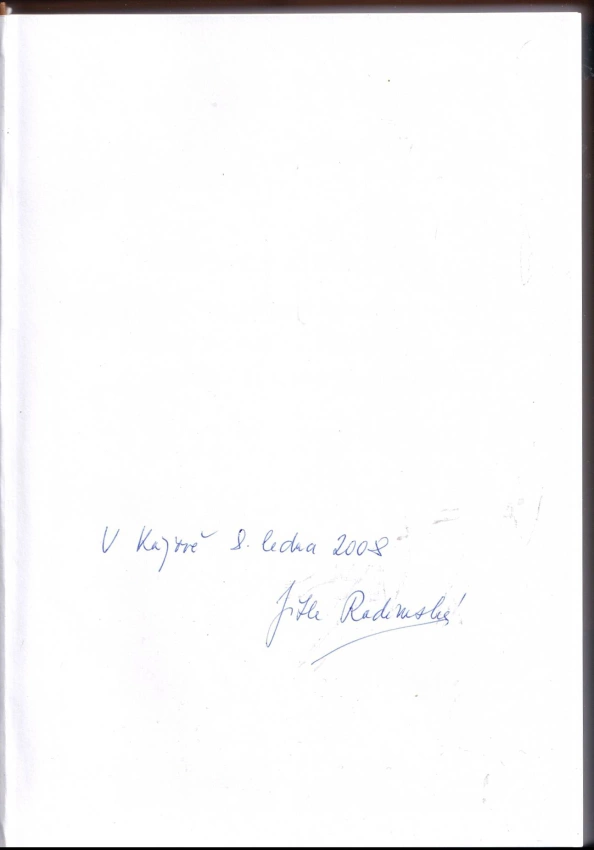 V Kájově 8. ledna 2008
Jitka Radimská